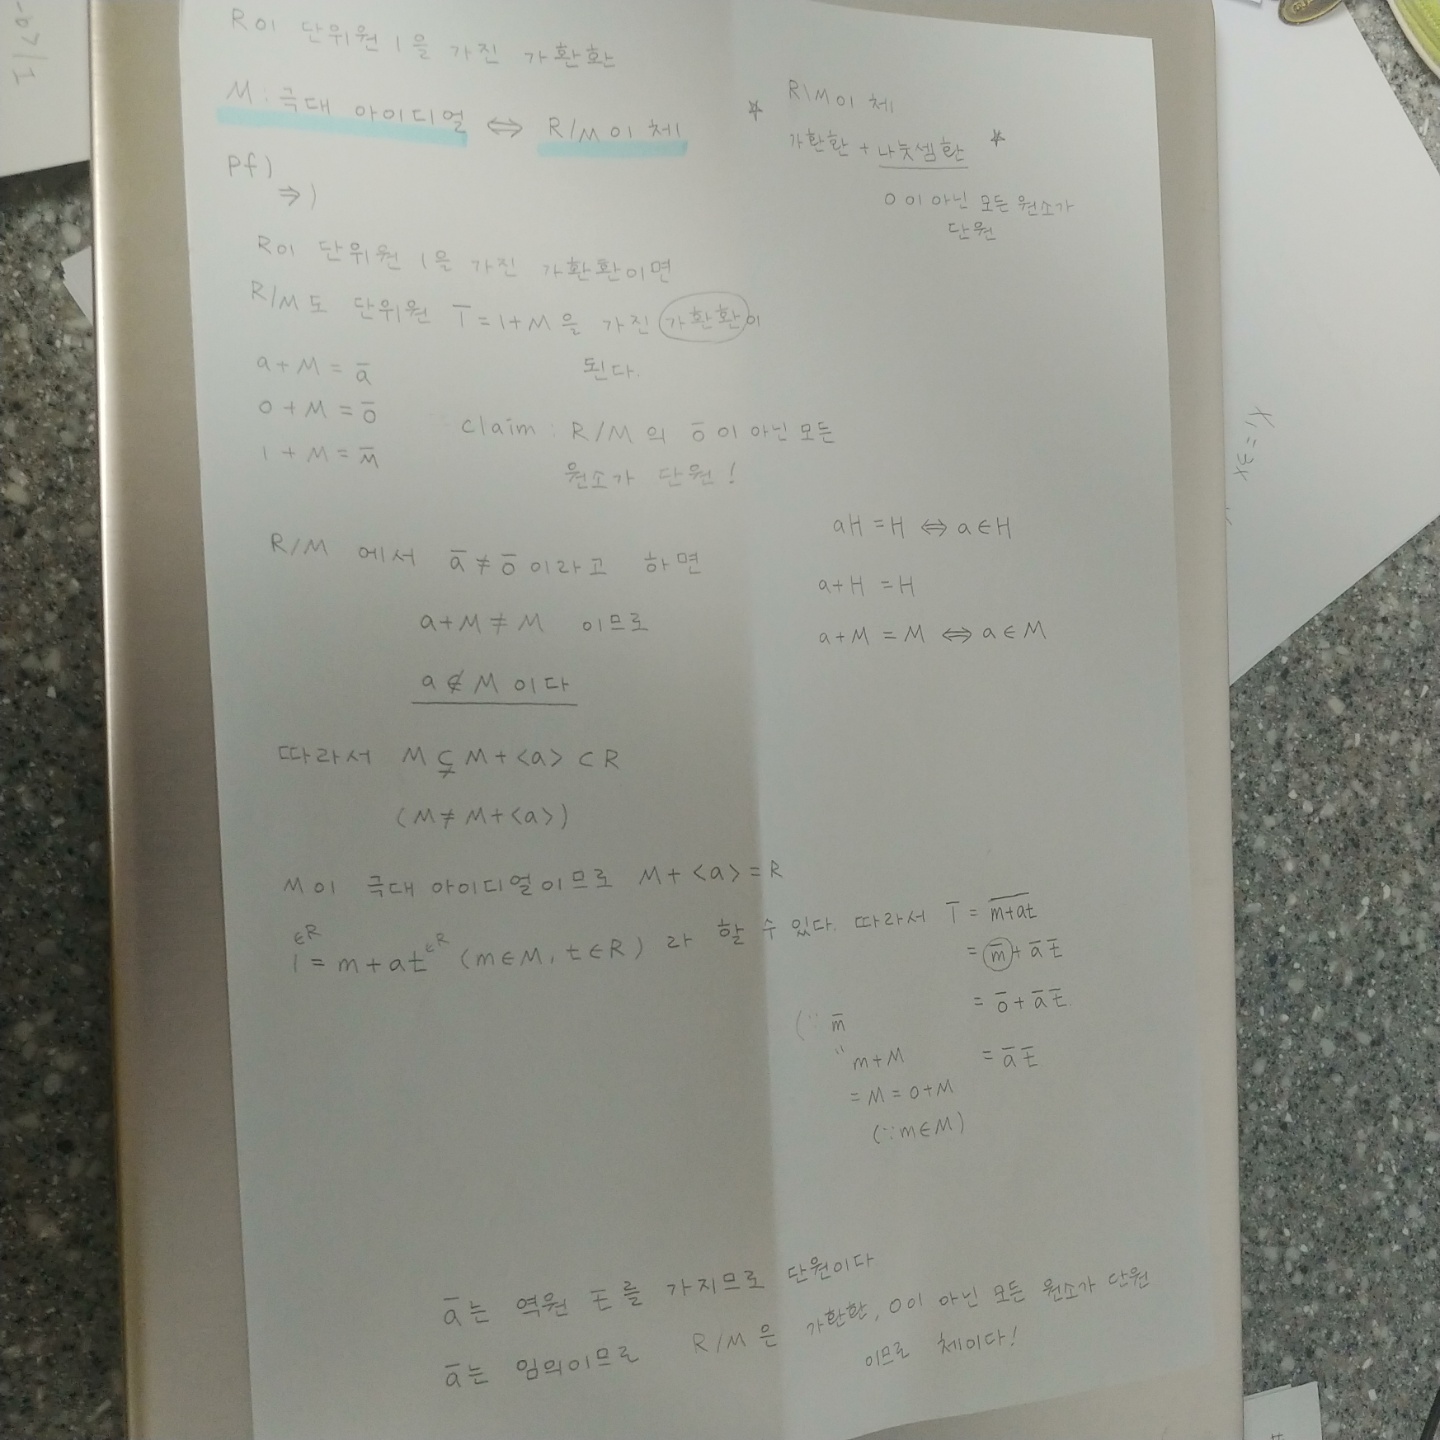 R이 단위원 1을 가진 가환환
M : 극대 아이디얼 ⇔ R/M이 체
* R/M이 체
가환환 + 나눗셈환 *
0이 아닌 모든 원소가
단원
pf)
⇒)
R이 단위원 1을 가진 가환환이면
R/M도 단위원 1̄ = 1+M을 가진 가환환이
된다.
a+M = ā
0+M = 0̄
1+M = M̄
claim : R/M의 0̄이 아닌 모든
원소가 단원!
R/M 에서 ā ≠ 0̄ 이라고 하면
a+M ≠ M 이므로
a ∉ M 이다
aH = H ⇔ a∈H
a+H = H
a+M = M ⇔ a∈M
따라서 M ⊊ M+<a> ⊂ R
(M ≠ M+<a>)
M이 극대 아이디얼이므로 M+<a> = R
∈R ∈R
1 = m+at (m∈M, t∈R) 라 할 수 있다. 따라서 1̄ = \overline{m+at}
= m̄ + ā t̄
= 0̄ + ā t̄.
= ā t̄
(∵ m̄
" m+M
= M = 0+M
(∵ m∈M)
ā는 역원 t̄를 가지므로 단원이다
ā는 임의이므로 R/M은 가환환, 0이 아닌 모든 원소가 단원
이므로 체이다!
x₁ = 3x